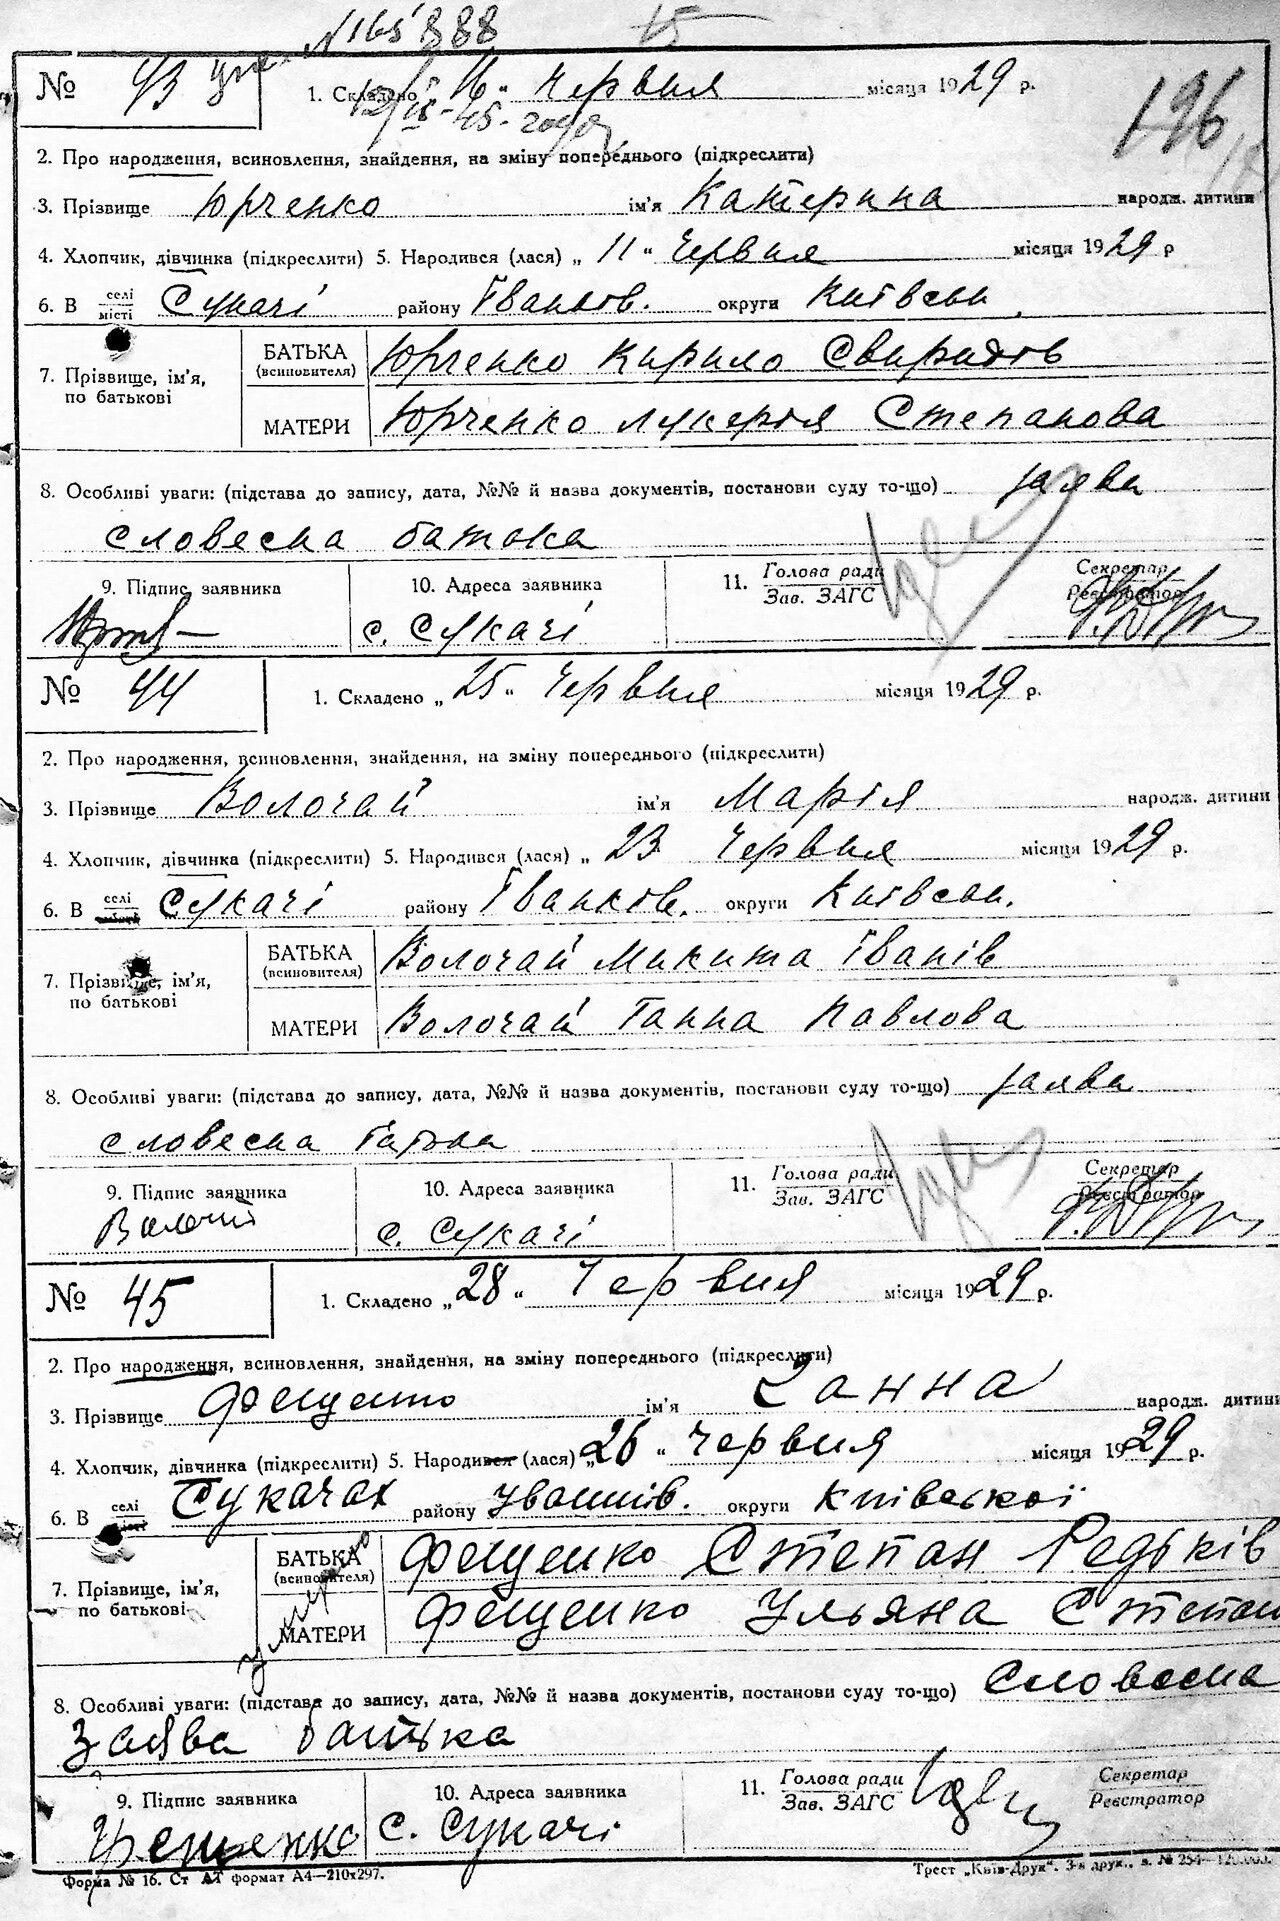 N 165888 15
№ 43
1. Складено „ 16 “ Червня місяця 1929 р.
196
2. Про народження, всиновлення, знайдення, на зміну попереднього (підкреслити)
3. Прізвище Юрченко ім'я Катерина народж. дитини
4. Хлопчик, дівчинка (підкреслити) 5. Народився (лася) „ 11 “ Червня місяця 1929 р
6. В селі місті Сукачі району Іванков. округи Київськ.
7. Прізвище, ім'я, по батькові
БАТЬКА (всиновителя) Юрченко Кирило Свиридів
МАТЕРИ Юрченко Лукерія Степанова
8. Особливі уваги: (підстава до запису, дата, №№ й назва документів, постанови суду то-що) заява
словесна батька
9. Підпис заявника 10. Адреса заявника 11. Голова ради Зав. ЗАГС Секретар Реєстратор
с. Сукачі
№ 44
1. Складено „ 25 “ Червня місяця 1929 р.
2. Про народження, всиновлення, знайдення, на зміну попереднього (підкреслити)
3. Прізвище Волочай ім'я Марія народж. дитини
4. Хлопчик, дівчинка (підкреслити) 5. Народився (лася) „ 23 Червня місяця 1929 р.
6. В селі Сукачі району Іванков. округи Київськ.
7. Прізвище, ім'я, по батькові
БАТЬКА (всиновителя) Волочай Микита Іванів
МАТЕРИ Волочай Ганна Павлова
8. Особливі уваги: (підстава до запису, дата, №№ й назва документів, постанови суду то-що) заява
словесна батька
9. Підпис заявника 10. Адреса заявника 11. Голова ради Зав. ЗАГС Секретар Реєстратор
Волочай с. Сукачі
№ 45
1. Складено „ 28 “ Червня місяця 1929 р.
2. Про народження, всиновлення, знайдення, на зміну попереднього (підкреслити)
3. Прізвище Фещенко ім'я Ганна народж. дитини
4. Хлопчик, дівчинка (підкреслити) 5. Народився (лася) „ 26 “ Червня місяця 1929 р.
6. В селі Сукачах району округи Київської
7. Прізвище, ім'я, по батькові
БАТЬКА (всиновителя) Фещенко Степан Редьків
МАТЕРИ Фещенко Ульяна Степан
8. Особливі уваги: (підстава до запису, дата, №№ й назва документів, постанови суду то-що) Словесна
заява батька
9. Підпис заявника 10. Адреса заявника 11. Голова ради Зав. ЗАГС Секретар Реєстратор
Фещенко с. Сукачі
Форма № 16. Ст АТ формат А4—210х297. Трест „Київ-Друк“. 3-я друк.